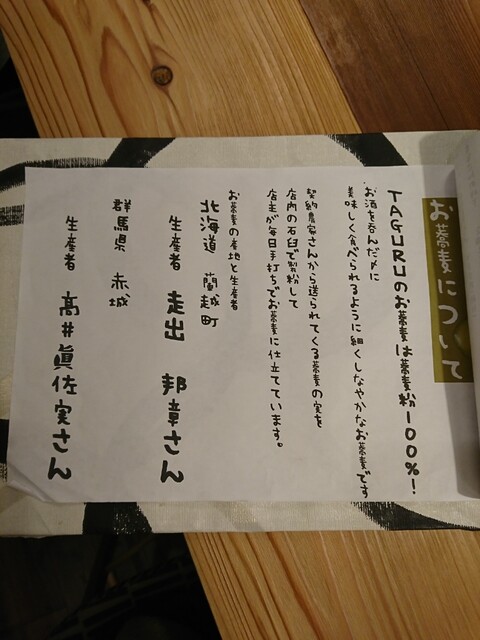 お蕎麦について
TAGURUのお蕎麦は蕎麦粉100%!
お酒を呑んだ〆に
美味しく食べられるように細くしなやかなお蕎麦です
契約農家さんから送られてくる蕎麦の実を
店内の石臼で製粉して
店主が毎日手打ちでお蕎麦に仕立てています。
お蕎麦の産地と生産者
北海道 蘭越町
生産者 走出 邦章さん
群馬県 赤城
生産者 髙井眞佐実さん